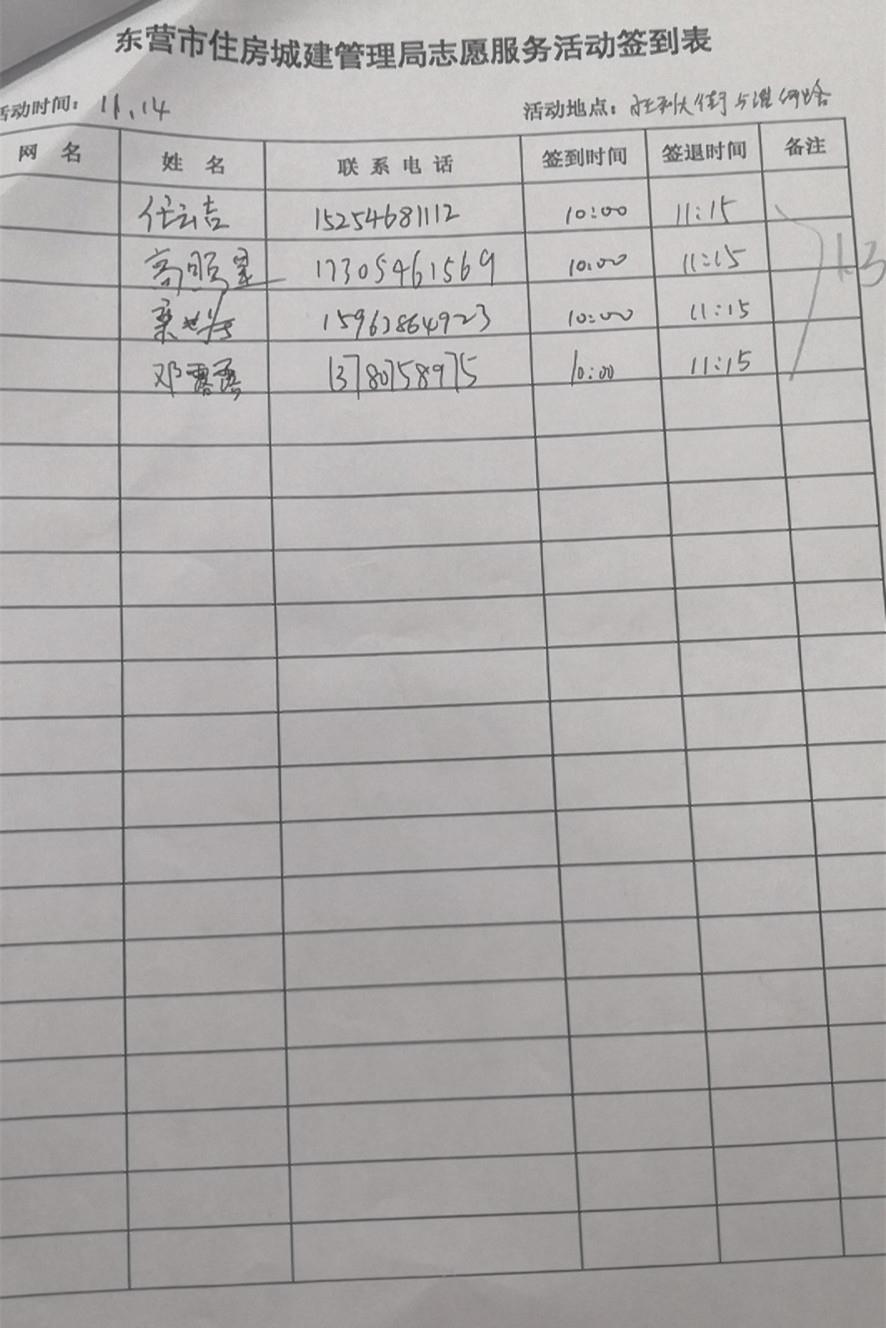 东营市住房城建管理局志愿服务活动签到表
活动时间: 11.14 活动地点: 胜利大街与淮河路
网 名 姓 名 联系电话 签到时间 签退时间 备注
任云吉 15254681112 10:00 11:15
17305461569 10:00 11:15
15963864923 10:00 11:15
邓露露 13780758975 10:00 11:15
1.3